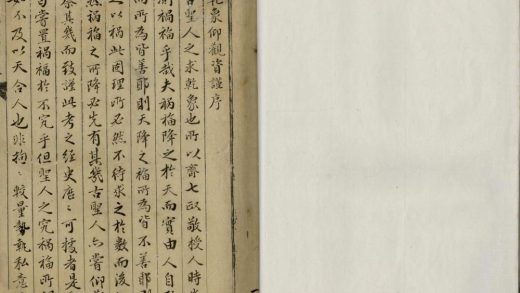 乾象仰觀資謹序
古聖人之求乾象也所以齊七政敬授人時
禍福乎哉夫禍福降之於天而實由人自
而所為皆善耶則天降之福所為皆不善耶則
之以禍此固理所必然不待求之於數而後
然禍福之所降必先有其幾古聖人亦嘗仰
察其幾而致謹此考之經史歷々可據者是
嘗置禍福於不究乎但聖人之究禍福所
如不及以天合人也非拘々較量執私意